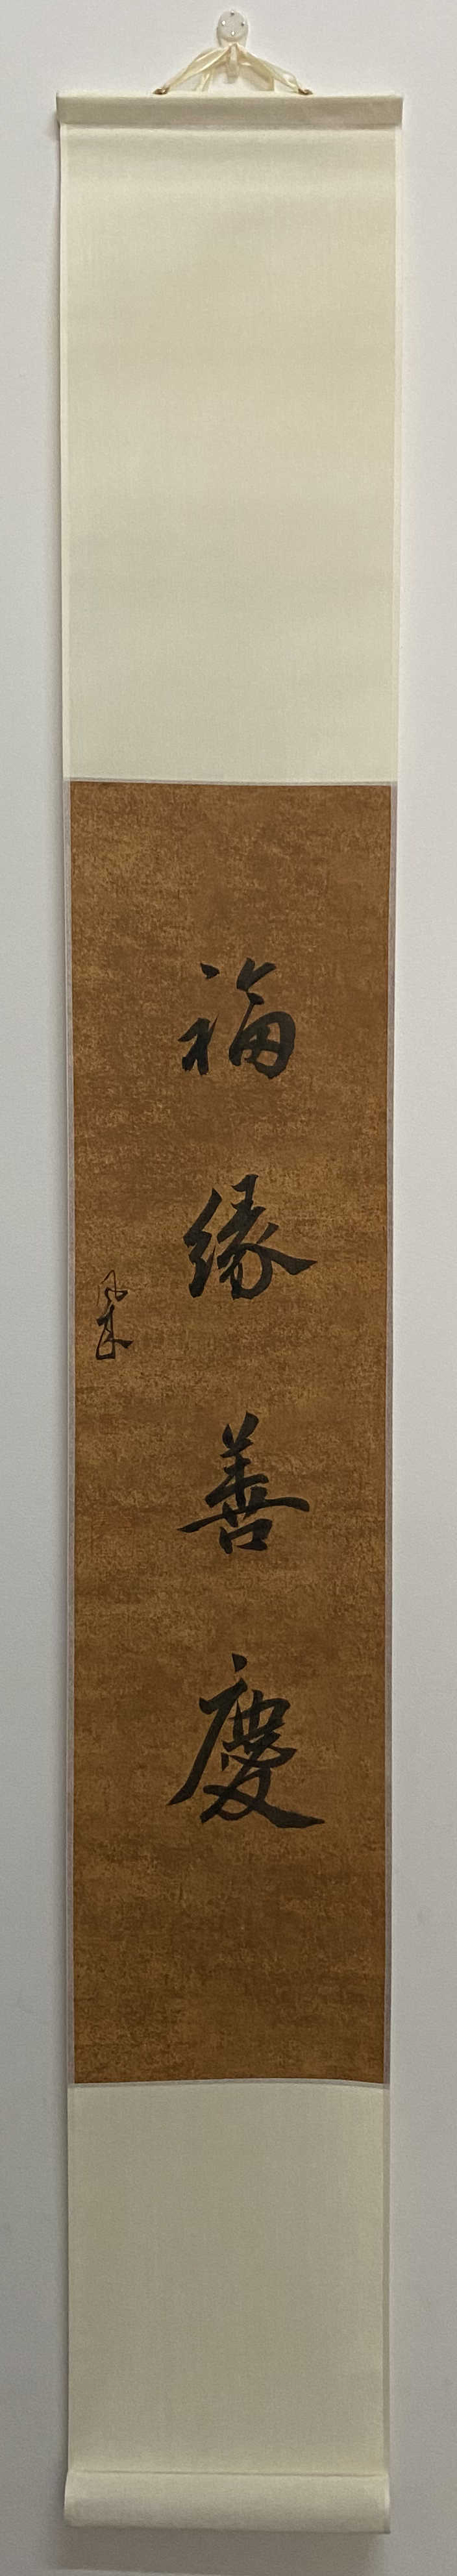 福緣善慶